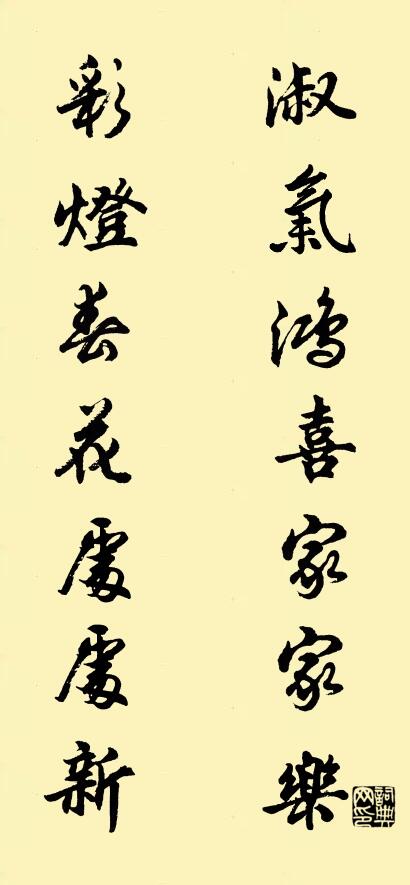 淑氣鴻喜家家樂
彩燈春花處處新
詞典网印